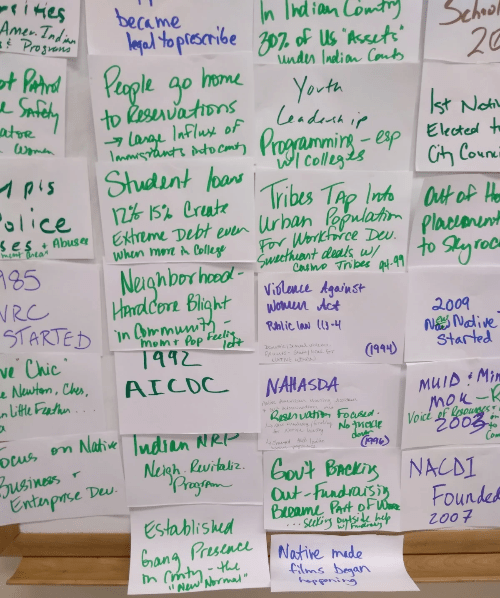 Amer. Indian
& Programs
became
legal to prescribe
In Indian Country
30% of US "Assets"
under Indian Counts
School
20
of Patrol
Safety
Women
People go home
to Reservations
→ Large Influx of
Immigrants into comty
Youth
Leadership
Programming - esp
w/ colleges
1st Nativ
Elected t
City Counci
MPLS
Police
+ Abuses
Student loans
12% 15% Create
Extreme Debt even
when more in College
Tribes Tap Into
Urban Population
For Workforce Dev.
Sweetheart deals w/
Casino Tribes 94-99
Out of Ho
Placement
to Skyroc
985
VRC
STARTED
Neighborhood-
Hardcore Blight
in Community -
mom + Pop Feeling
left
Violence Against
Women Act
Public law 113-4
(1994)
2009
Native
started
ve "Chic"
Newton, Cher,
Little Feather...
1992
AICDC
NAHASDA
Reservation Focused.
No trickle
down
(1996)
MUID: Min
Voice of Resources
2003
Focus on Native
Business +
Enterprise Dev.
Indian NRP
Neigh. Revitaliz.
Program
Gov't Backing
Out - Fundraising
Became Part of Work
...seeking outside help
w/ Fundraising
NACDI
Founded
2007
Established
Gang Presence
in Comty - the
"New Normal"
Native made
films began
happening